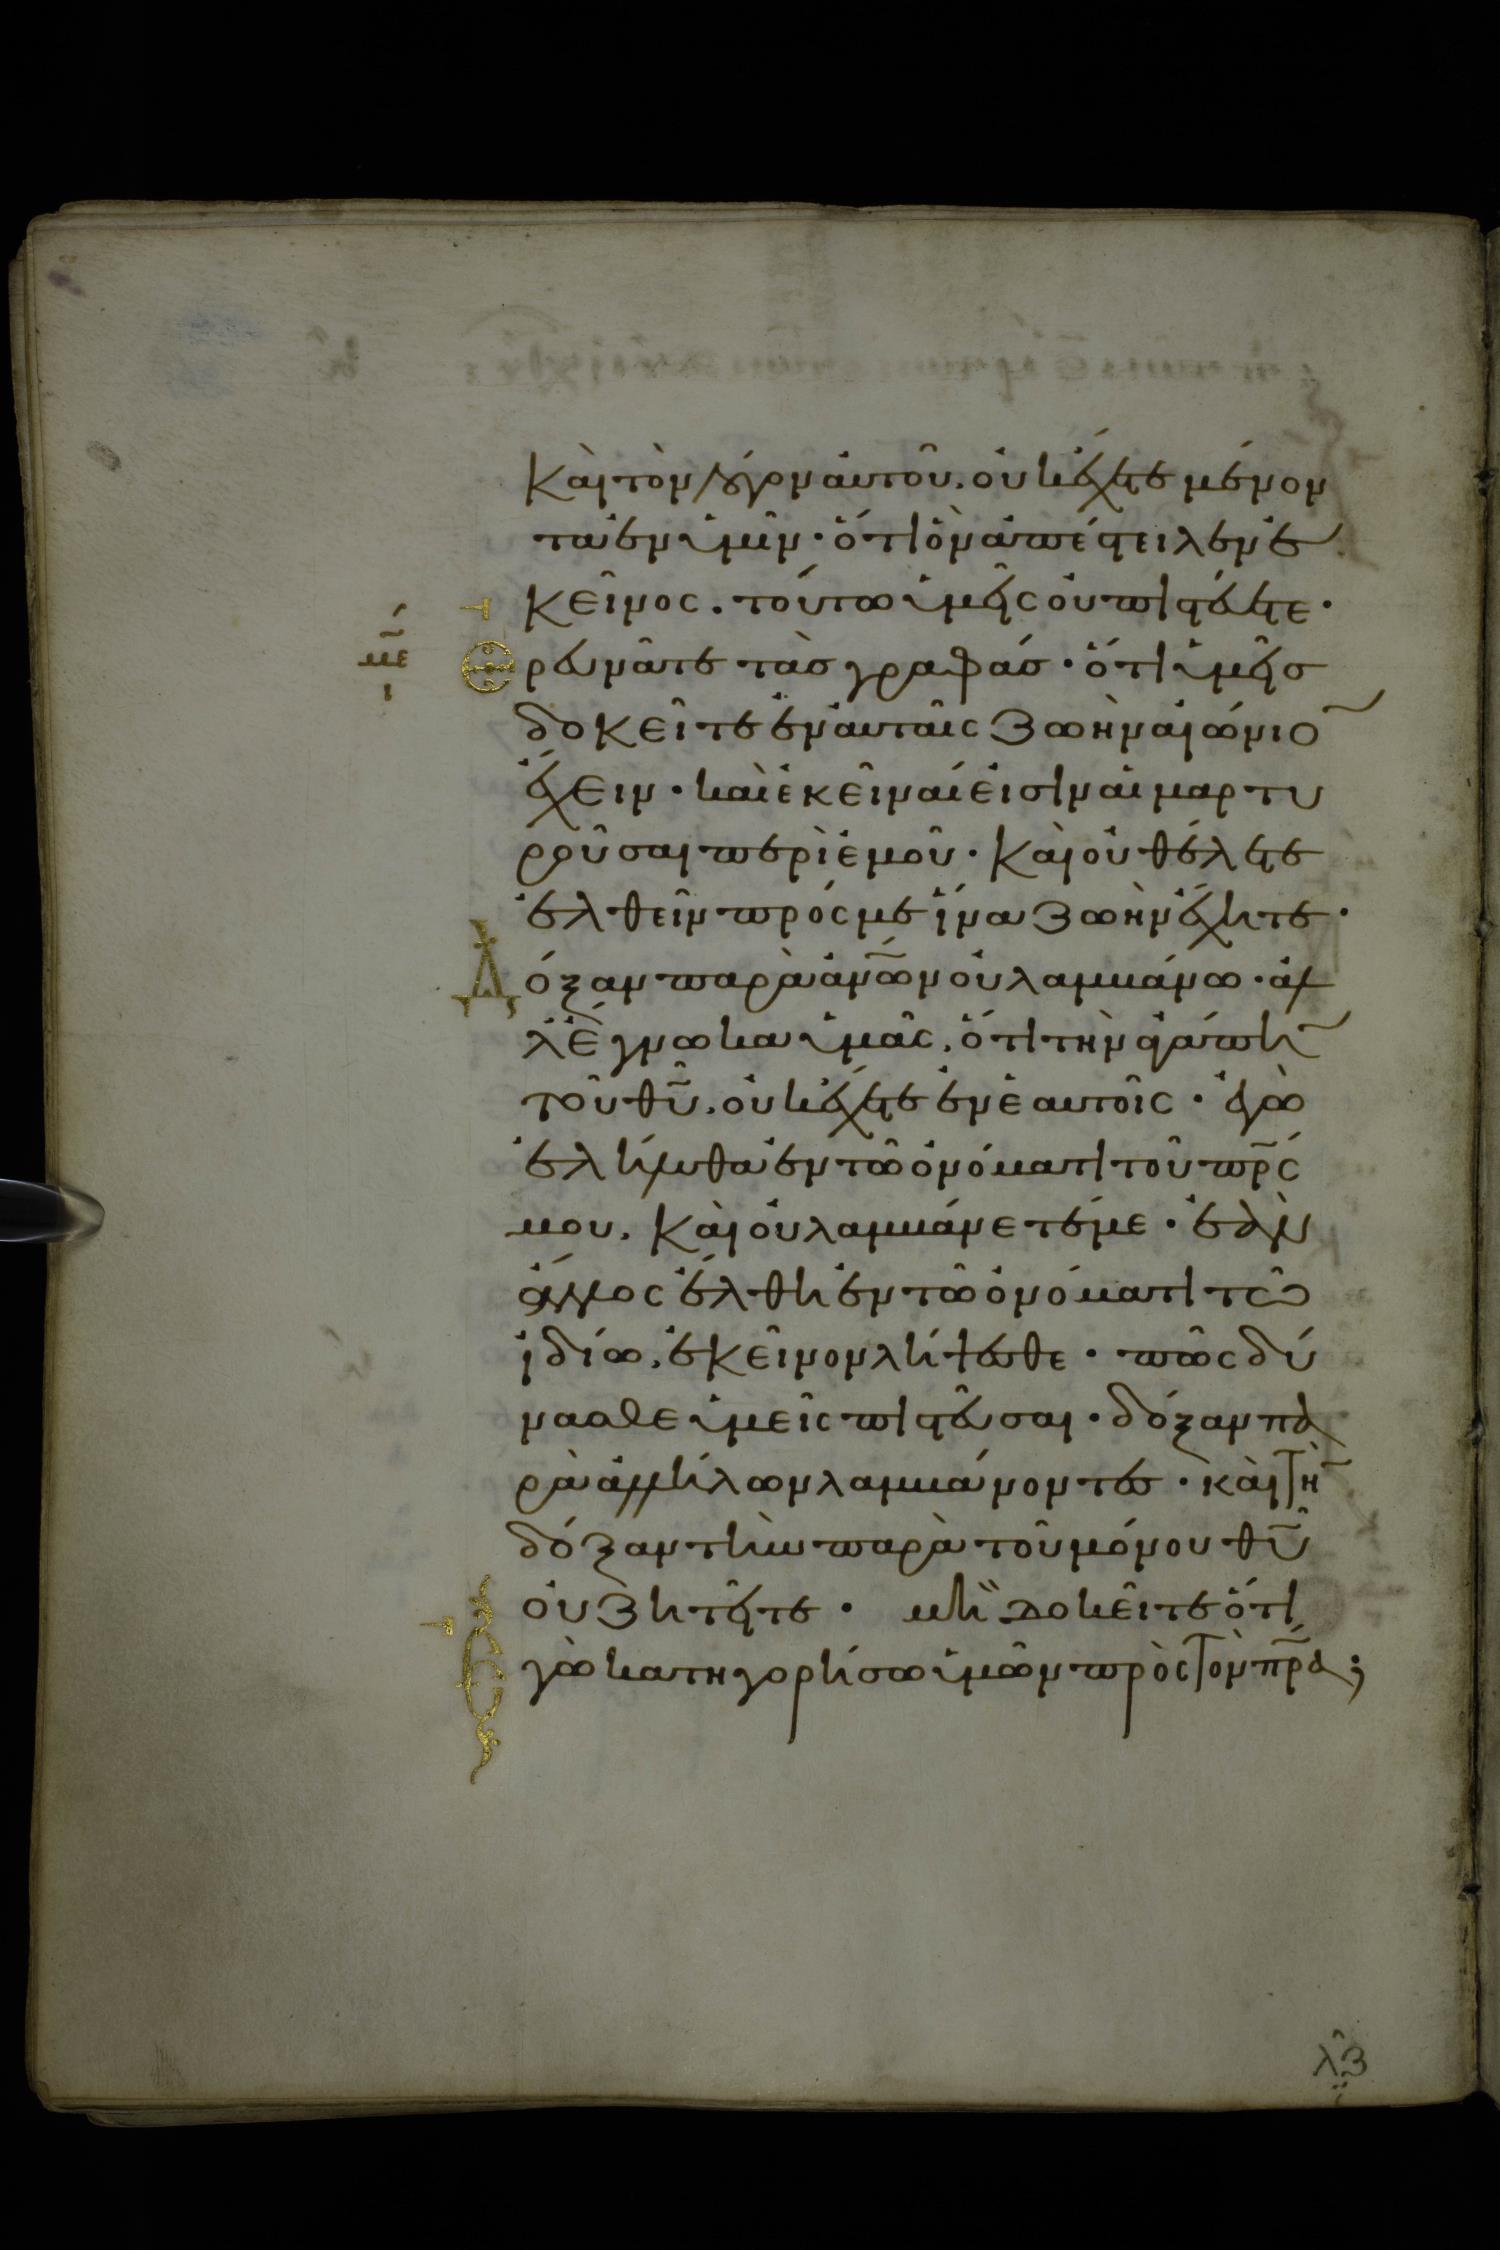 καὶ τὸν λόγον αὐτοῦ. οὐκ ἔχετε μένον
τα ἐν ὑμῖν· ὅτι ὃν ἀπέστειλεν ἐ
κεῖνος. τούτω ὑμεῖς οὐ πιστεύετε·
με ι
Ἐρευνᾶτε τὰσ γραφάσ· ὅτι ὑμεῖσ
δοκεῖτε ἐν αὐταῖς ζωὴν αἰώνιο̄
ἔχειν· καὶ ἐκεῖναί εἰσιν αἱ μαρτυ
ροῦσαι περὶ ἐμοῦ· καὶ οὐ θέλετε
ἐλθεῖν πρός με ἵνα ζωὴν ἔχητε·
Δόξαν παρὰ ἀν̅ων οὐ λαμβάνω· ἀλ
λ' ἔγνωκα ὑμᾶς, ὅτι τὴν ἀγάπη̄
τοῦ θ̅υ. οὐκ ἔχετε ἐν ἑαυτοῖς· ἐγὼ
ἐλήλυθα ἐν τῶ ὀνόματι τοῦ π̅ρ̅ς
μου, καὶ οὐ λαμβάνετέ με· ἐὰν
ἄλλος ἔλθη ἐν τῶ ὀνόματι τῶ
ἰδίω, ἐκεῖνον λήψεσθε· πῶς δύ
νασθε ὑμεῖς πιστεῦσαι· δόξαν πα
ρὰ ἀλλήλων λαμβάνοντες· καὶ τὴ̄
δόξαν τὴν παρὰ τοῦ μόνου θ̅υ
οὐ ζητεῖτε· μὴ δοκεῖτε ὅτι
Ἐγὼ κατηγορήσω ὑμῶν πρὸς τὸν π̅ρ̅α;
λζ